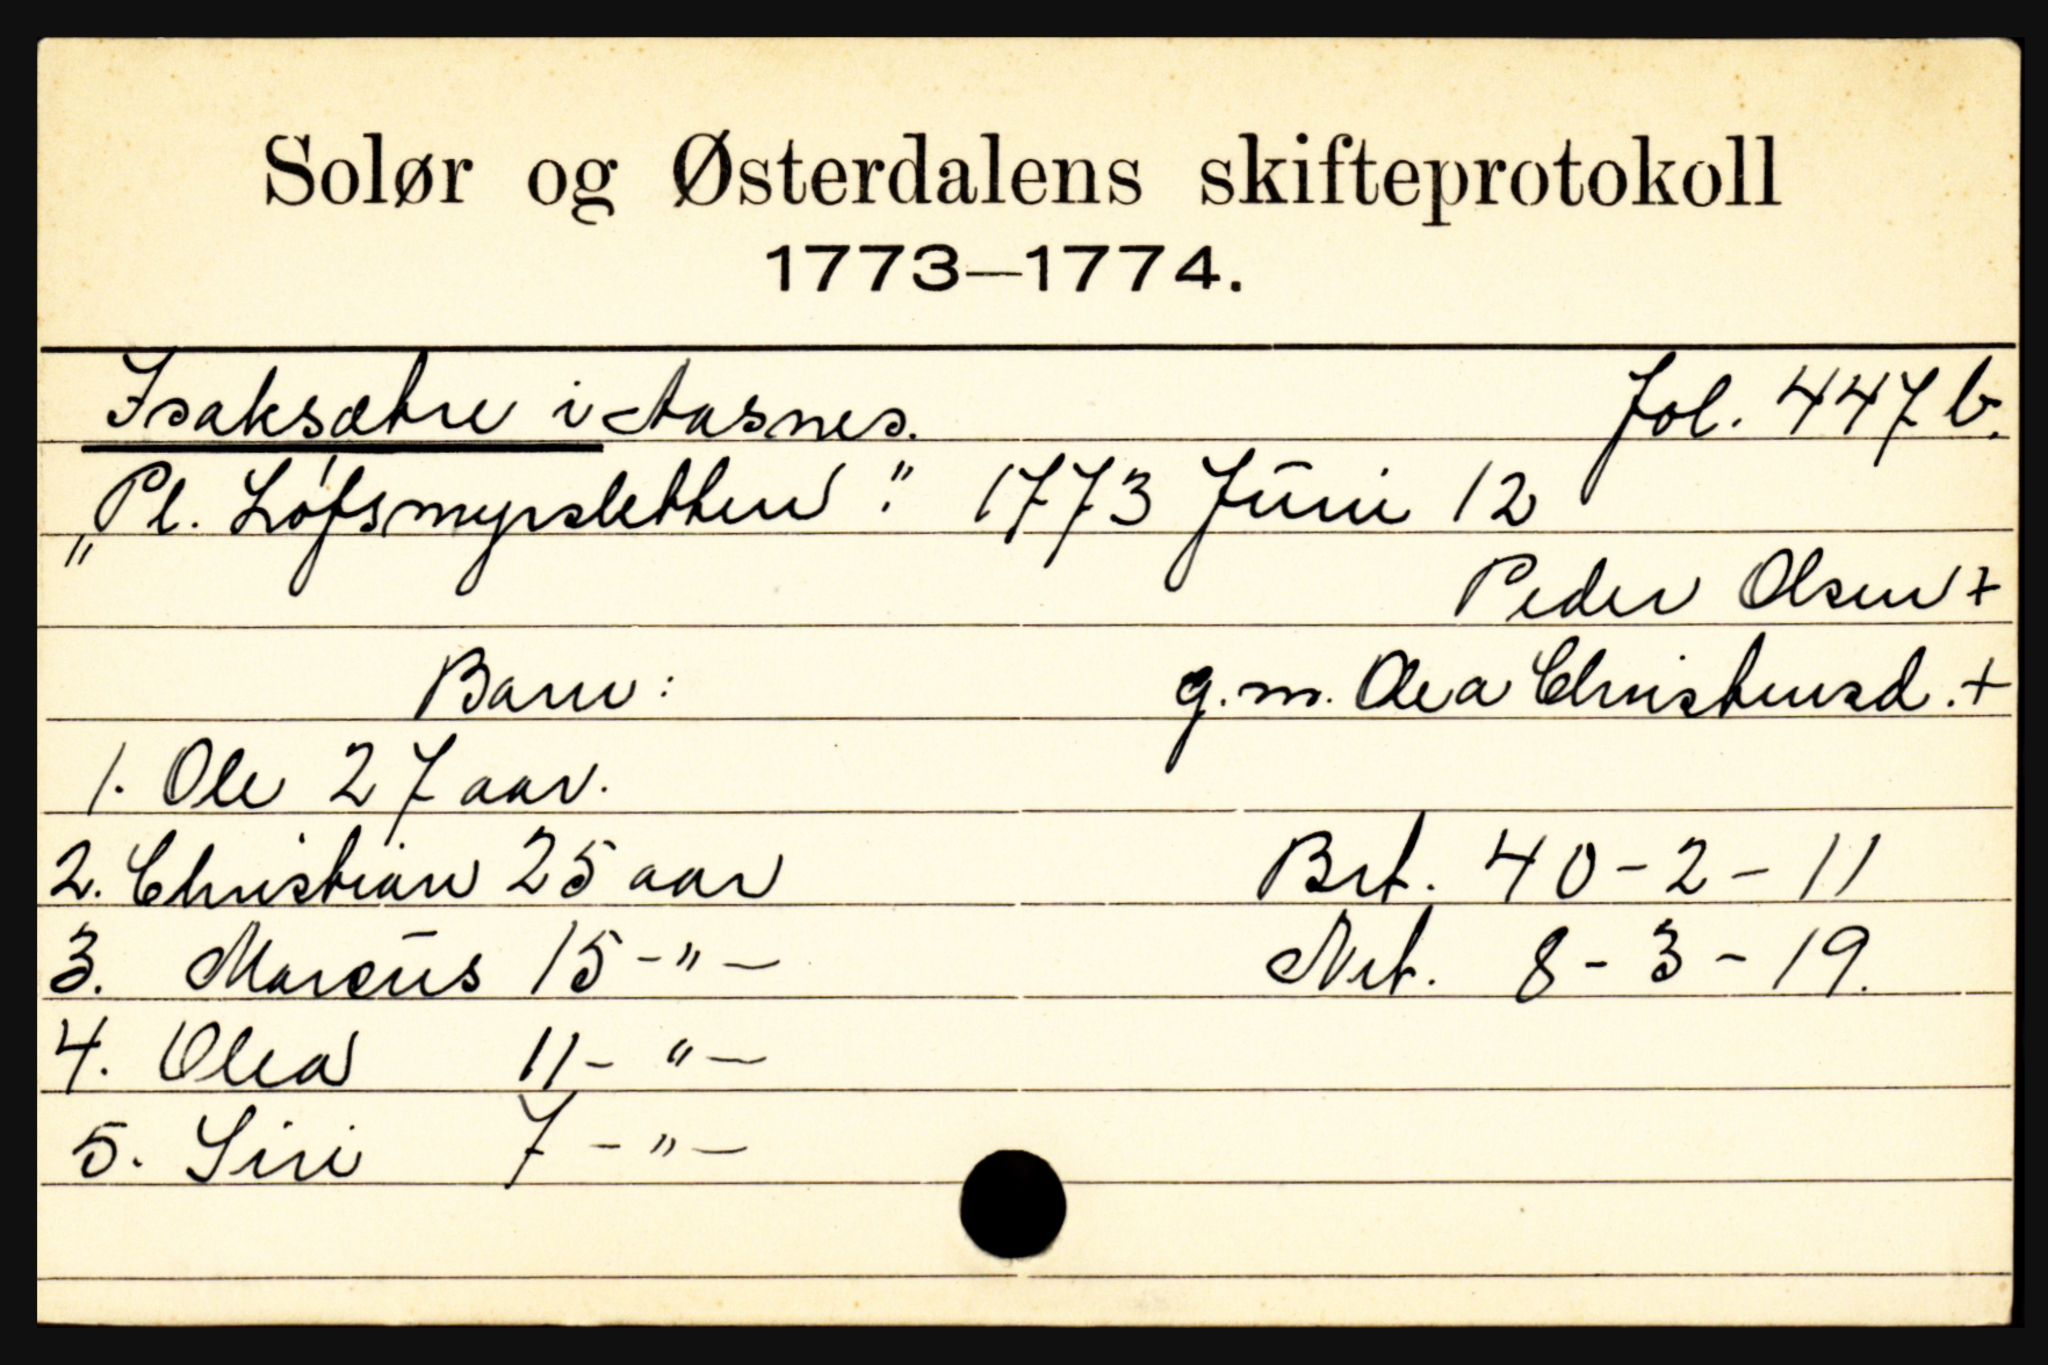 Solør og Østerdalens skifteprotokoll
1773—1774.
Isaksætre i Aasnes. fol. 447 b.
„Pl. Løfsmyrsletten". 1773 Juni 12
Peder Olsen +
Barn: g. m. Olea Christensd. +
1. Ole 27 aar.
2. Christian 25 aar Brt. 40-2-11
3. Marcus 15 -"- Net. 8-3-19.
4. Olea 11 -"-
5. Siri 7 -"-